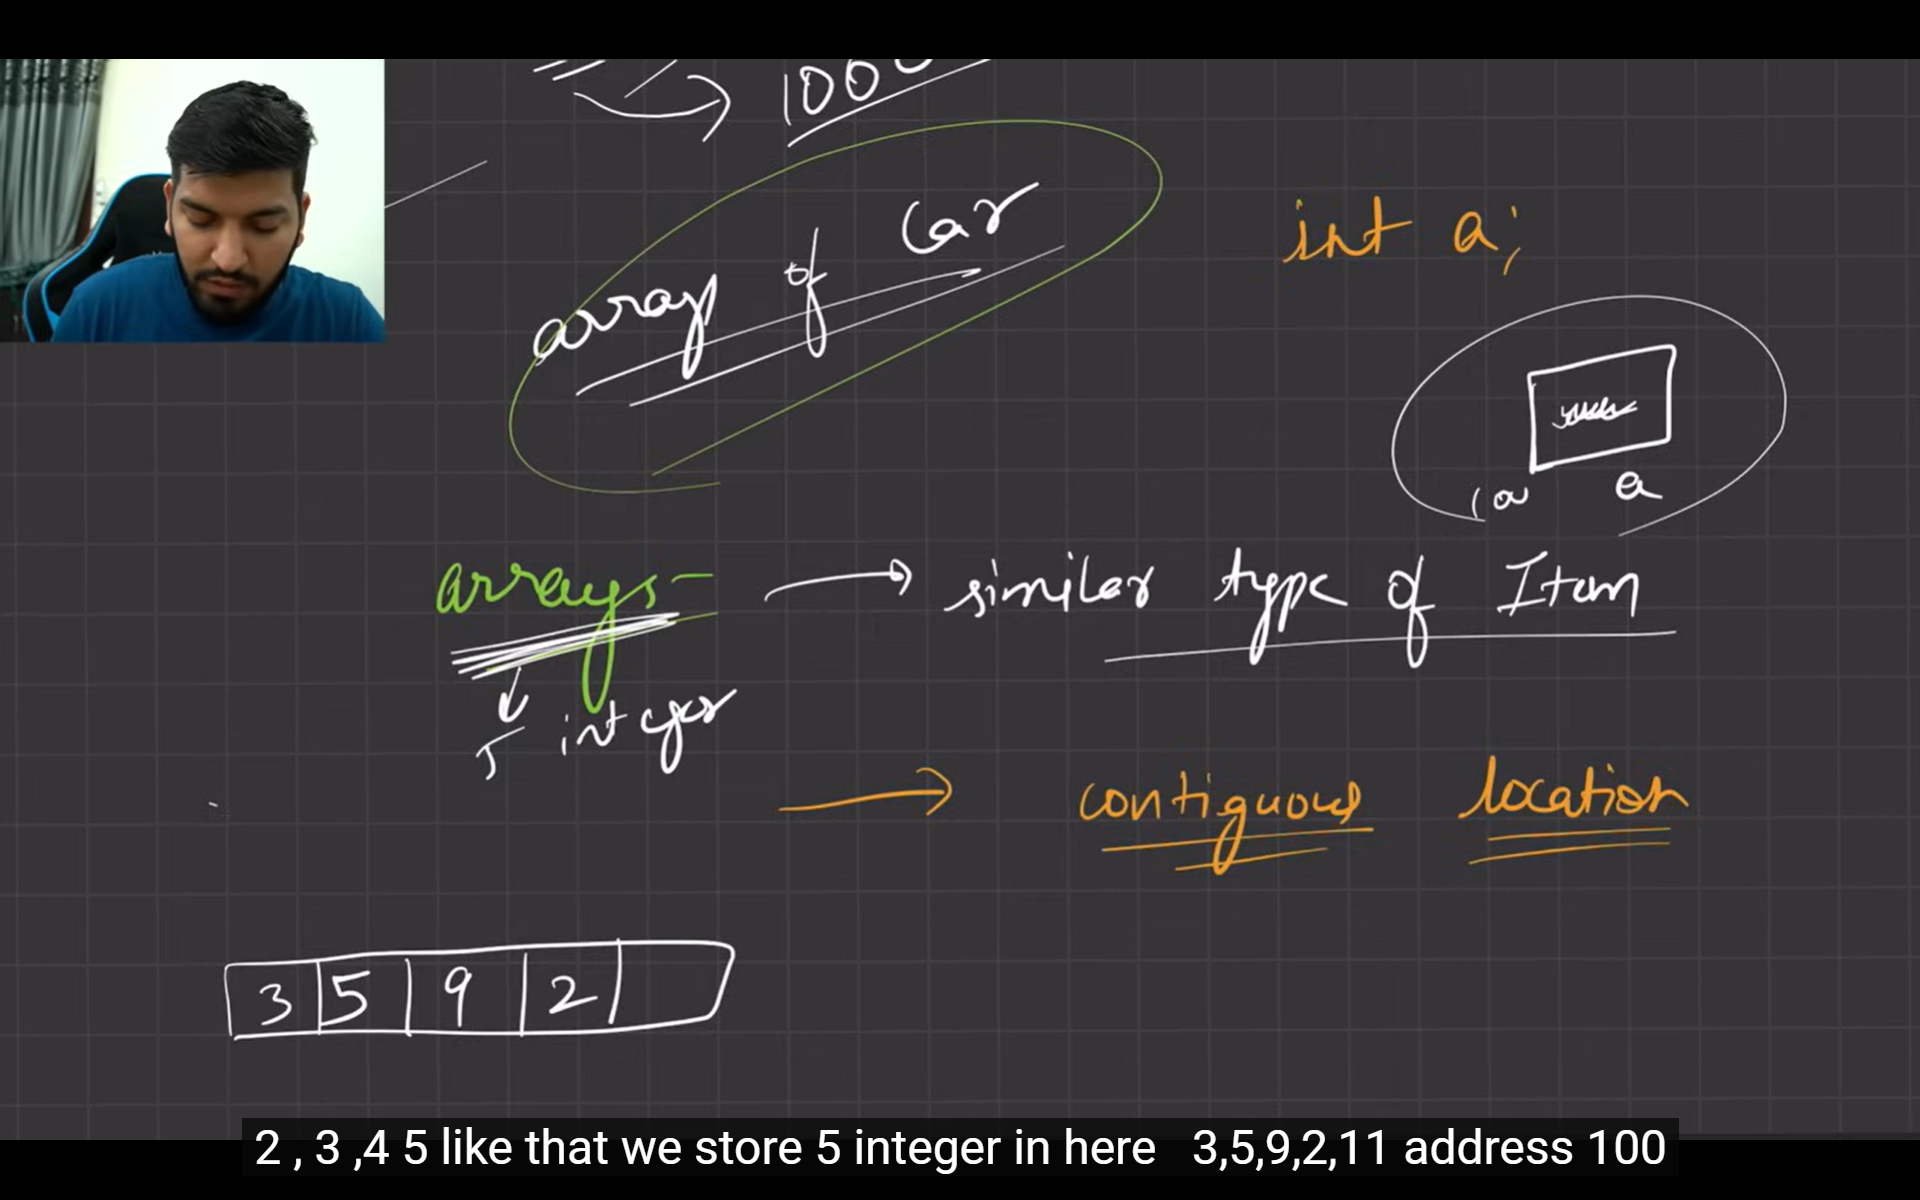 100
array of Car
int a;
a
arrays
similar type of Item
5 integer
contiguous location
3 5 9 2
2 , 3 ,4 5 like that we store 5 integer in here 3,5,9,2,11 address 100